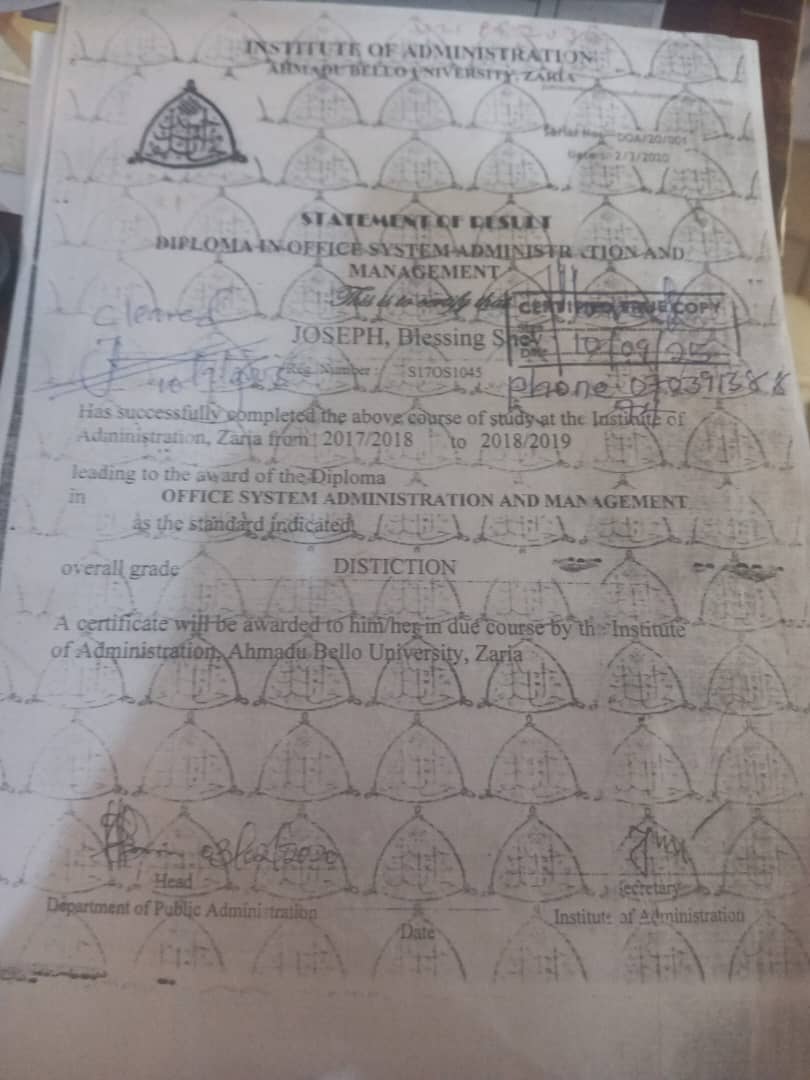 INSTITUTE OF ADMINISTRATION
AHMADU BELLO UNIVERSITY, ZARIA
Serial No: DOA/20/001
Date: 2/3/2020
STATEMENT OF RESULT
DIPLOMA IN OFFICE SYSTEM ADMINISTRATION AND
MANAGEMENT
This is to certify that
CERTIFIED TRUE COPY
Cleared
JOSEPH, Blessing
Date 10/09/25
Reg. Number: S17OS1045
Phone
Has successfully completed the above course of study at the Institute of
Administration, Zaria from: 2017/2018 to 2018/2019
leading to the award of the Diploma
in OFFICE SYSTEM ADMINISTRATION AND MANAGEMENT
as the standard indicated
overall grade DISTICTION
A certificate will be awarded to him/her in due course by the Institute
of Administration, Ahmadu Bello University, Zaria
03/02/2020
Head
Secretary
Department of Public Administration
Institute of Administration
Date